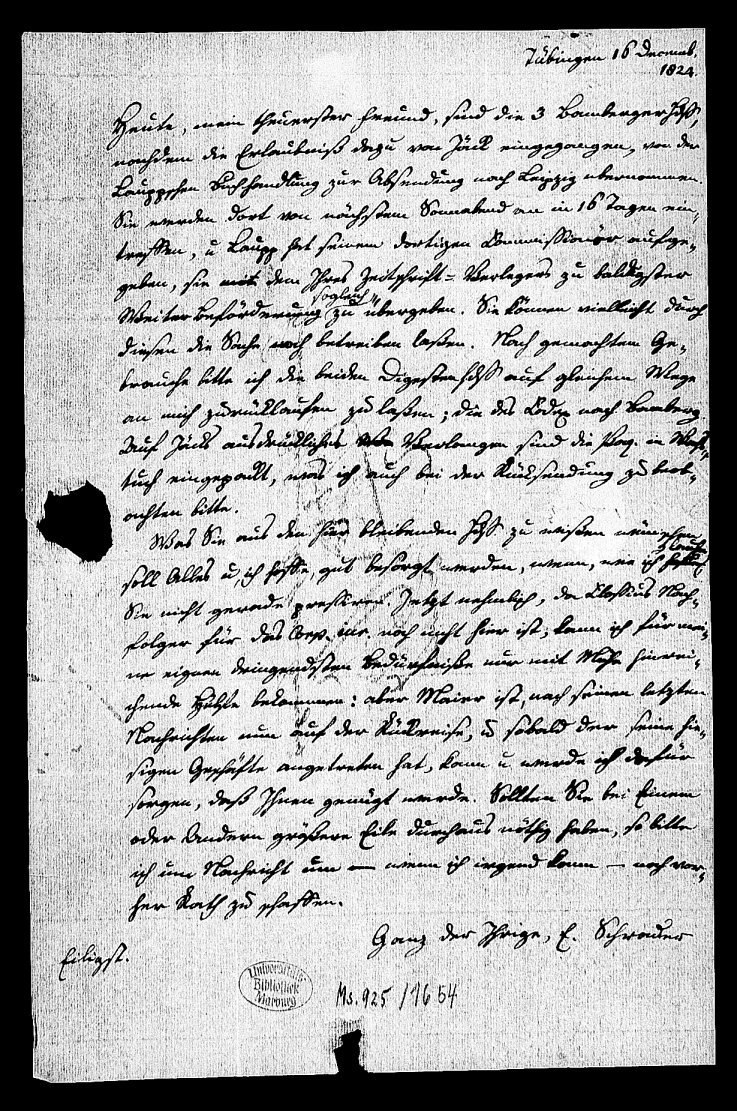 Tübingen 16 Decemb.
1824.
Heute, mein theuerster Freund, sind die 3 Bamberger Hdss,
nachdem die Erlaubniß dazu von Jäck eingegangen, von der
Lauppschen Buchhandlung zur Absendung nach Leipzig übernommen.
Sie werden dort von nächstem Sonnabend an in 16 Tagen ein-
treffen, u Laupp hat seinem dortigen Commissionär aufge-
geben, sie dem Ihres Zeitschrift-Verlegers zu baldigster
Weiterbeförderung sogleich zu übergeben. Sie können vielleicht durch
diesen die Sache noch betreiben laßen. Nach gemachtem Ge-
brauche bitte ich die beiden Digestenhdss auf gleichem Wege
an mich zurücklaufen zu laßen; die des Codex nach Bamberg.
Auf Jäcks ausdrückliches Verlangen sind die in Wachs-
tuch eingepackt, was ich auch bei der Rücksendung zu beob-
achten bitte.
Was Sie aus den hier bleibenden Hdss zu wißen wünschen
soll Alles u ich hoffe, gut besorgt werden, wenn, wie ich
Sie nicht gerade pressiren. Jetzt nehmlich, da Clossius Nach-
folger für das Corp. iur. noch nicht hier ist, kann ich für mei-
ne eignen dringendsten Bedürfniße nur mit Mühe hinrei-
chende Hülfe bekommen: aber Maier ist, nach seinen letzten
Nachrichten nun auf der Rückreise, u sobald der seine hie-
sigen Geschäfte angetreten hat, kann u werde ich dafür
sorgen, daß Ihnen genügt werde. Sollten Sie bei Einem
oder Andern größere Eile durchaus nöthig haben, so bitte
ich um Nachricht um — wenn ich irgend kann — noch vor-
her Rath zu schaffen.
Ganz der Ihrige, E. Schrader
Eiligst.
Universitäts-
Bibliothek
Marburg
Ms. 925/1654